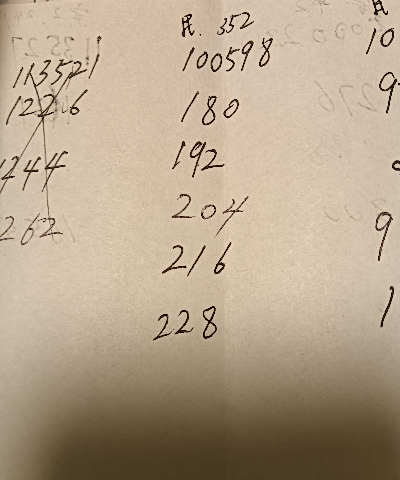 113521
1226
1244
262
民. 352
100598
180
192
204
216
228
10
9
9
1